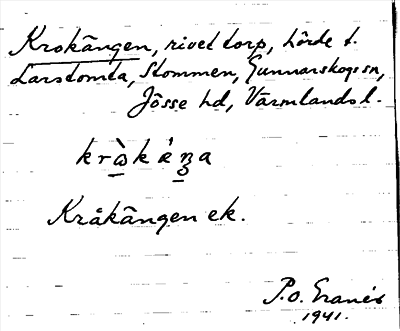 Krokängen, rivet torp, hörde t.
Larstomta, Stommen, Gunnarskogs sn,
Jösse hd, Värmlands l.
Kråkängen ek.
P.O. Granér
1941.